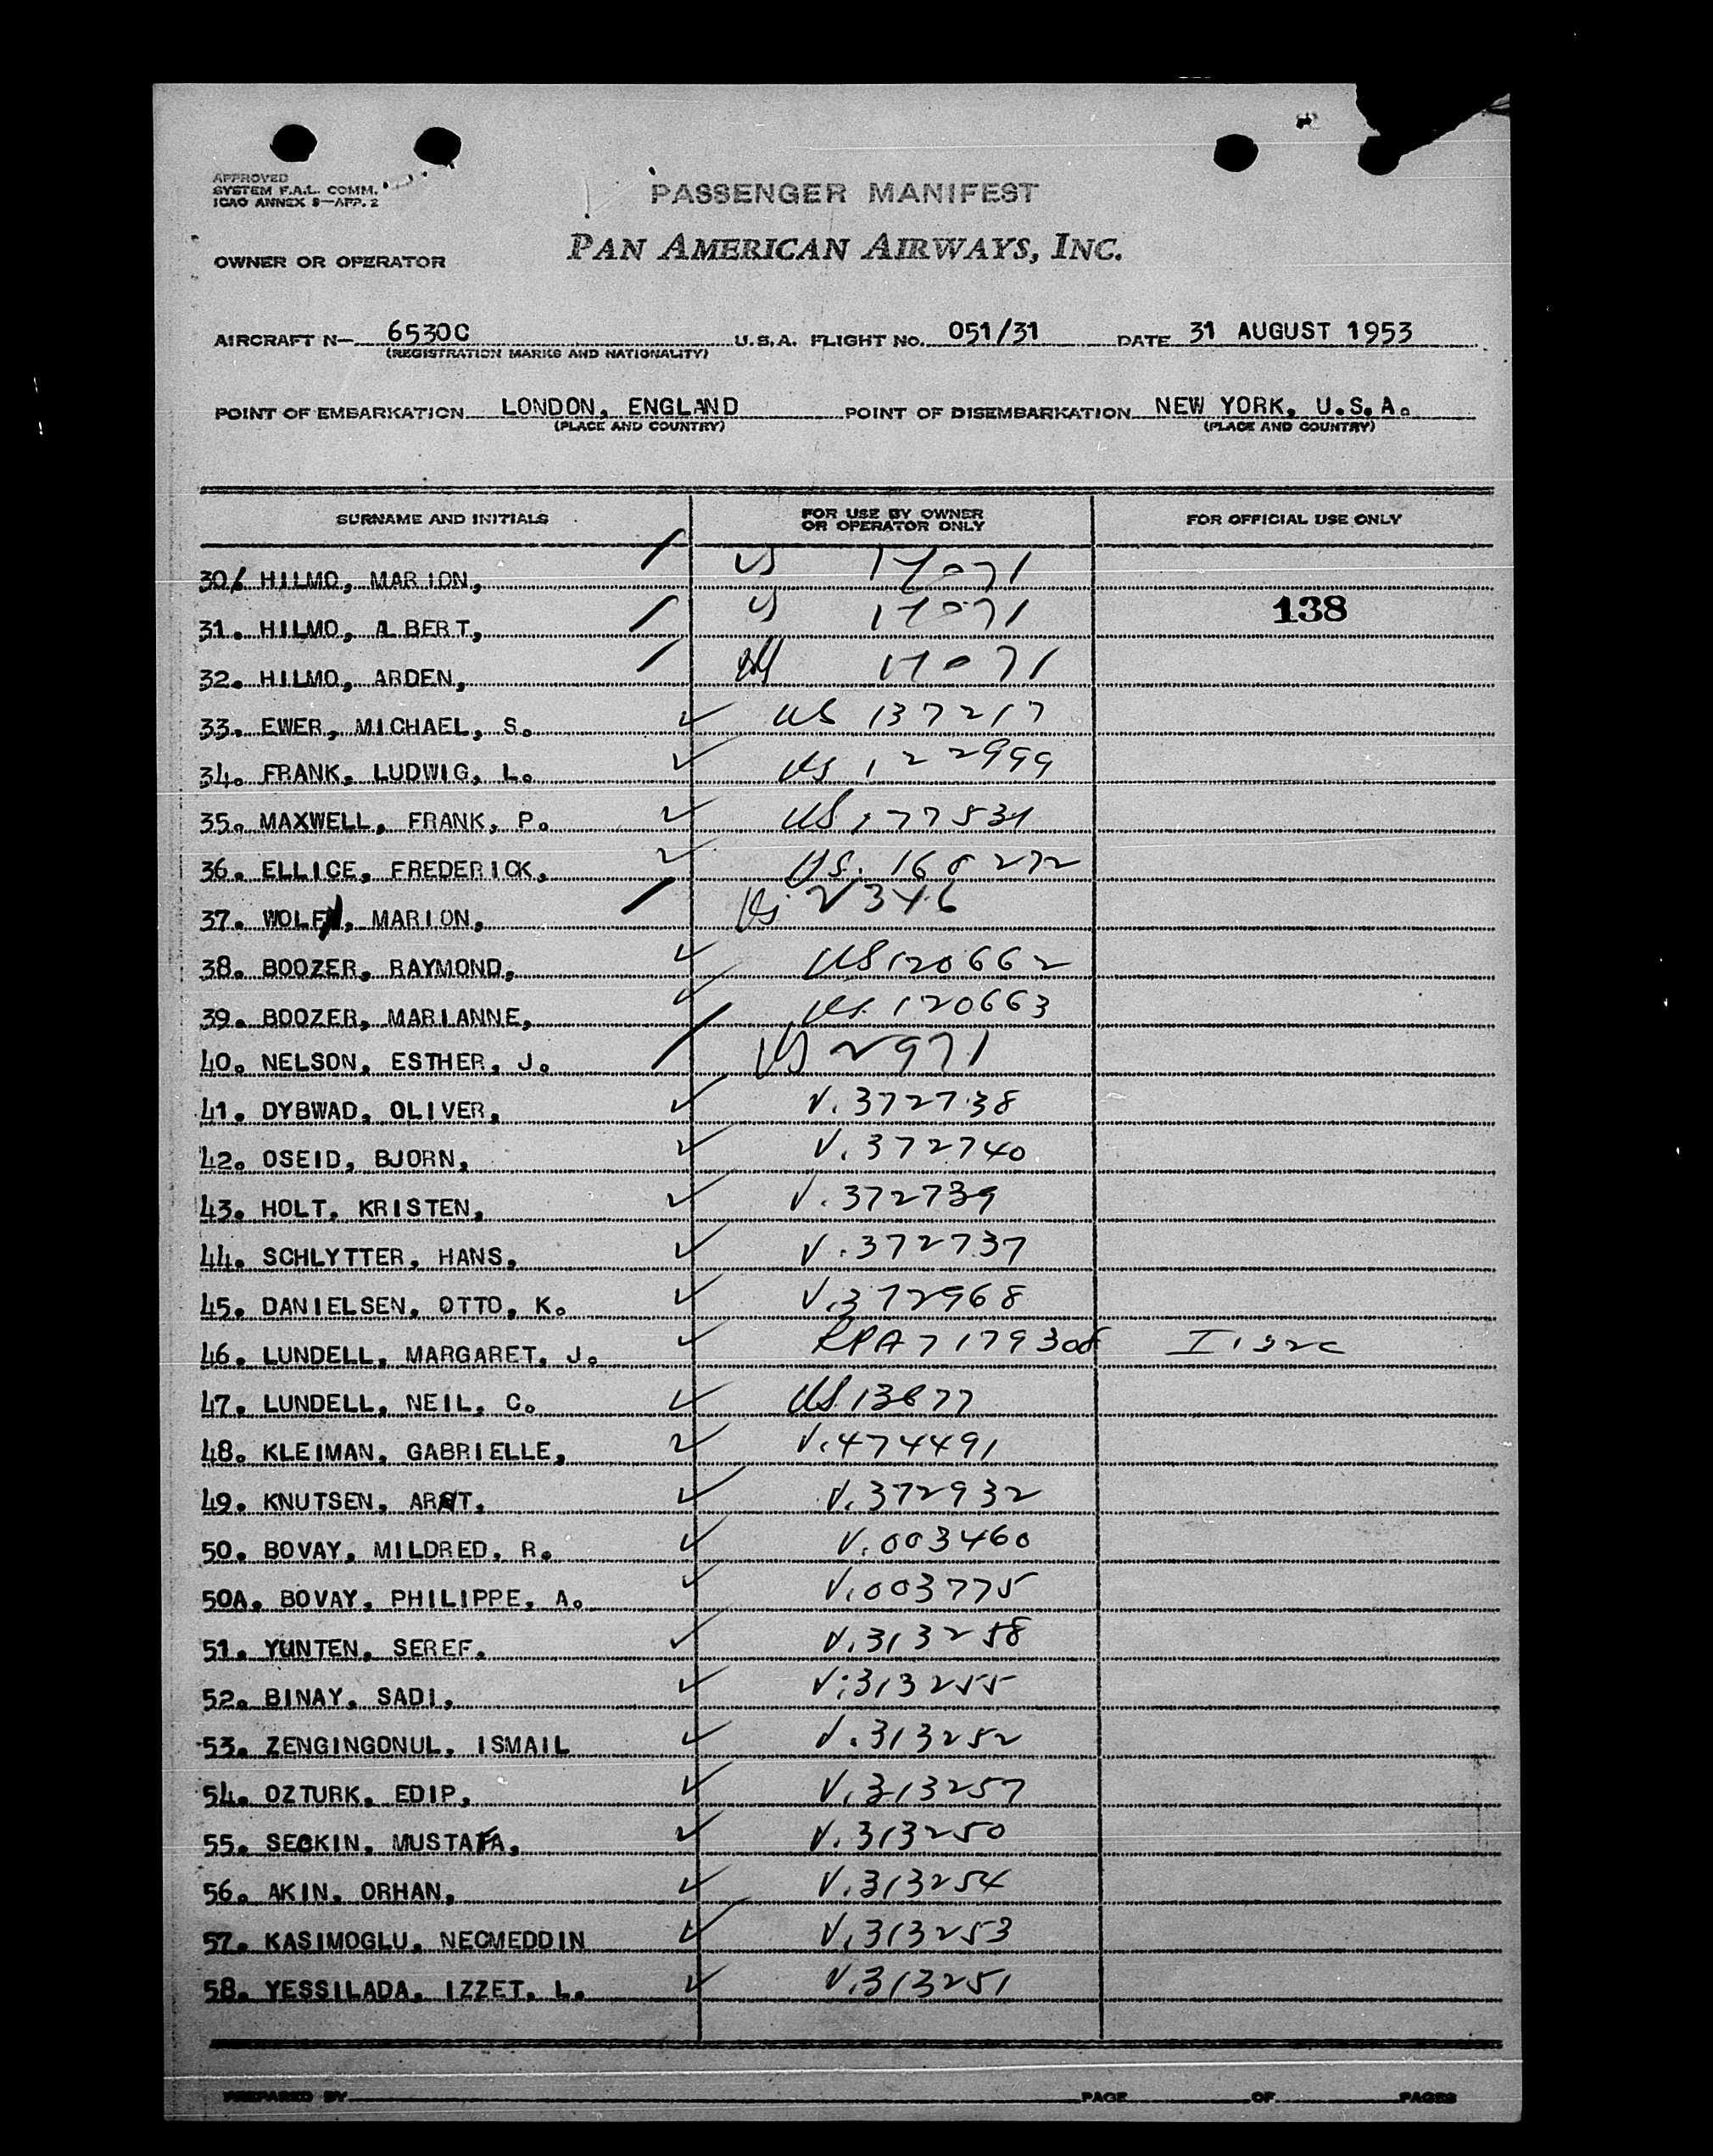 APPROVED
SYSTEM F.A.L. COMM.
ICAO ANNEX 9—APP. 2
PASSENGER MANIFEST
OWNER OR OPERATOR PAN AMERICAN AIRWAYS, INC.
AIRCRAFT N— 6530C U.S.A. FLIGHT NO. 051/31 DATE 31 AUGUST 1953
(REGISTRATION MARKS AND NATIONALITY)
POINT OF EMBARKATION LONDON, ENGLAND POINT OF DISEMBARKATION NEW YORK, U.S.A.
(PLACE AND COUNTRY) (PLACE AND COUNTRY)
SURNAME AND INITIALS FOR USE BY OWNER OR OPERATOR ONLY FOR OFFICIAL USE ONLY
30. HILMO, MARION, US 14071
31. HILMO, ALBERT, US 14071 138
32. HILMO, ARDEN, 14071
33. EWER, MICHAEL, S. US 137217
34. FRANK, LUDWIG, L. US 122999
35. MAXWELL, FRANK, P. US 177531
36. ELLICE, FREDERICK, US. 168272
37. WOLF, MARION, US 2346
38. BOOZER, RAYMOND, US 120662
39. BOOZER, MARIANNE, US. 120663
40. NELSON, ESTHER, J. US 2971
41. DYBWAD, OLIVER, V. 372738
42. OSEID, BJORN, V. 372740
43. HOLT, KRISTEN, V. 372739
44. SCHLYTTER, HANS, V. 372737
45. DANIELSEN, OTTO, K. V. 372968
46. LUNDELL, MARGARET, J. RPA 7179308 I 132c
47. LUNDELL, NEIL, C. US 13877
48. KLEIMAN, GABRIELLE, V. 474491
49. KNUTSEN, ARNT, V. 372932
50. BOVAY, MILDRED, R. V. 003460
50A. BOVAY, PHILIPPE, A. V. 003775
51. YUNTEN, SEREF, V. 313258
52. BINAY, SADI, V. 313255
53. ZENGINGONUL, ISMAIL V. 313252
54. OZTURK, EDIP, V. 313257
55. SECKIN, MUSTAFA, V. 313250
56. AKIN, ORHAN, V. 313254
57. KASIMOGLU, NECMEDDIN V. 313253
58. YESSILADA, IZZET, L. V. 313251
PREPARED BY PAGE OF PAGES